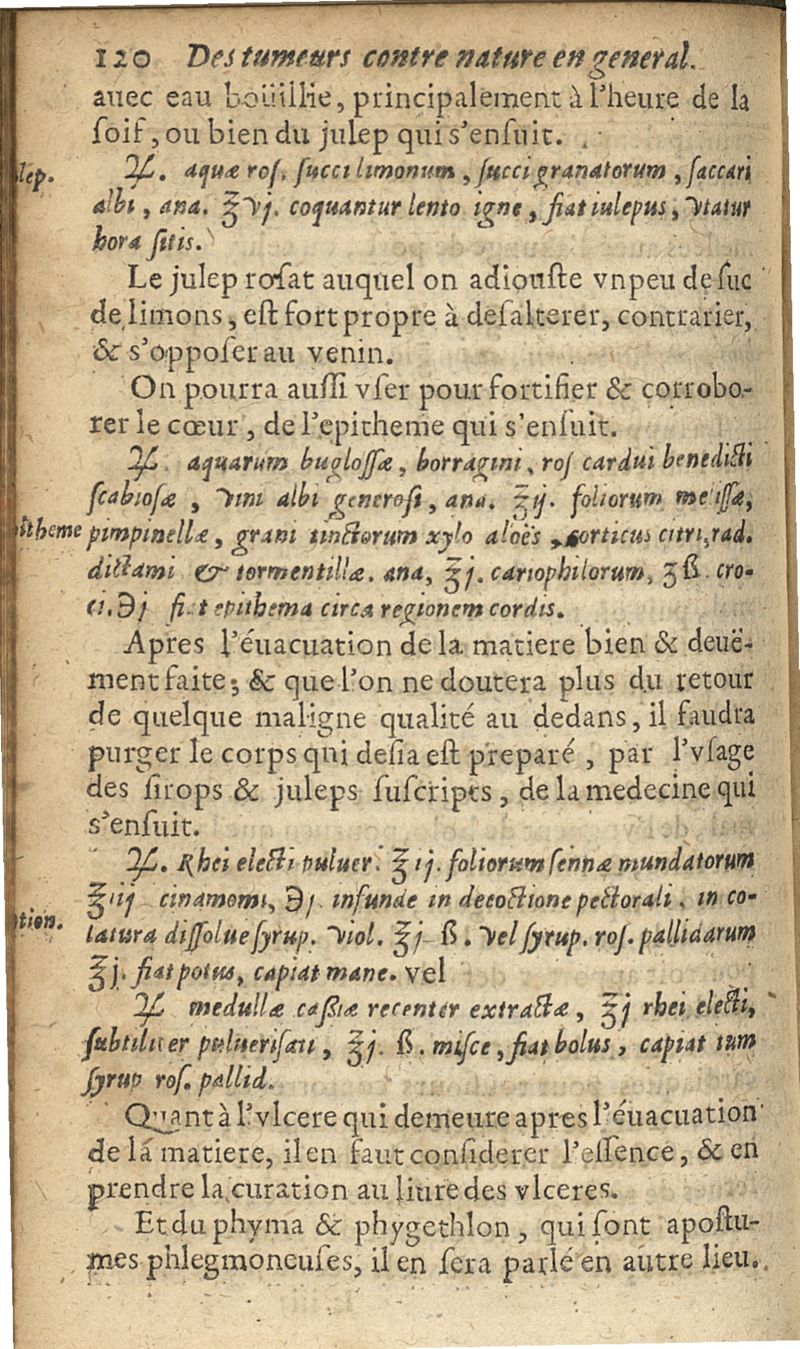 120 Des tumeurs contre nature en general.
auec eau boüillie, principalement à l'heure de la
soif, ou bien du julep qui s'ensuit.
lep.
♃. aquæ ros. succi limonum, succi granatorum, saccari
albi, ana. ℥vj. coquantur lento igne, fiat iulepus, vtatur
hora sitis.
Le julep rosat auquel on adiouste vnpeu de suc
de limons, est fort propre à desalterer, contrarier,
& s'opposer au venin.
On pourra aussi vser pour fortifier & corrobo-
rer le cœur, de l'epitheme qui s'ensuit.
♃. aquarum buglossæ, borragini, ros cardui benedicti
scabiosæ, vini albi generosi, ana. ℥ij. foliorum melissæ,
itheme
pimpinellæ, grani tinctorum xylo aloës, corticus citri, rad.
dictami & tormentillæ. ana, ℥j. cariophilorum, ʒß. cro-
ci. ℈j fiat epithema circa regionem cordis.
Apres l'éuacuation de la matiere bien & deuë-
ment faite; & que l'on ne doutera plus du retour
de quelque maligne qualité au dedans, il faudra
purger le corps qui desia est preparé, par l'vsage
des sirops & juleps suscripts, de la medecine qui
s'ensuit.
♃. Rhei electi puluer. ʒij. foliorum sennæ mundatorum
ʒiij cinamomi, ℈j. infunde in decoctione pectorali. in co-
tion.
latura dissolue syrup. viol. ℥j ß. vel syrup. ros. pallidarum
℥j. fiat potus, capiat mane. vel
♃ medullæ cassiæ recenter extractæ, ℥j rhei electi,
subtiluer puluerisati, ʒj. ß. misce, fiat bolus, capiat cum
syrup ros. pallid.
Quant à l'vlcere qui demeure apres l'éuacuation
de la matiere, il en faut considerer l'essence, & en
prendre la curation au liure des vlceres.
Et du phyma & phygethlon, qui sont apostu-
mes phlegmoneuses, il en sera parlé en autre lieu.